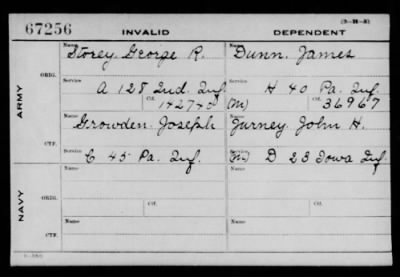 67256 INVALID DEPENDENT (3-M-5)
Name Storey, George R. Name Dunn, James
ORIG.
Service A 128 Ind. Inf. Service H 40 Pa. Inf.
Ctf. 142740 (M) Ctf. 36967
ARMY
Name Growden, Joseph Name Gurney, John H.
CTF.
Service C 45 Pa. Inf. Service (M) D 23 Iowa Inf.
Name Name
ORIG.
Ctf. Ctf.
NAVY
Name Name
CTF.